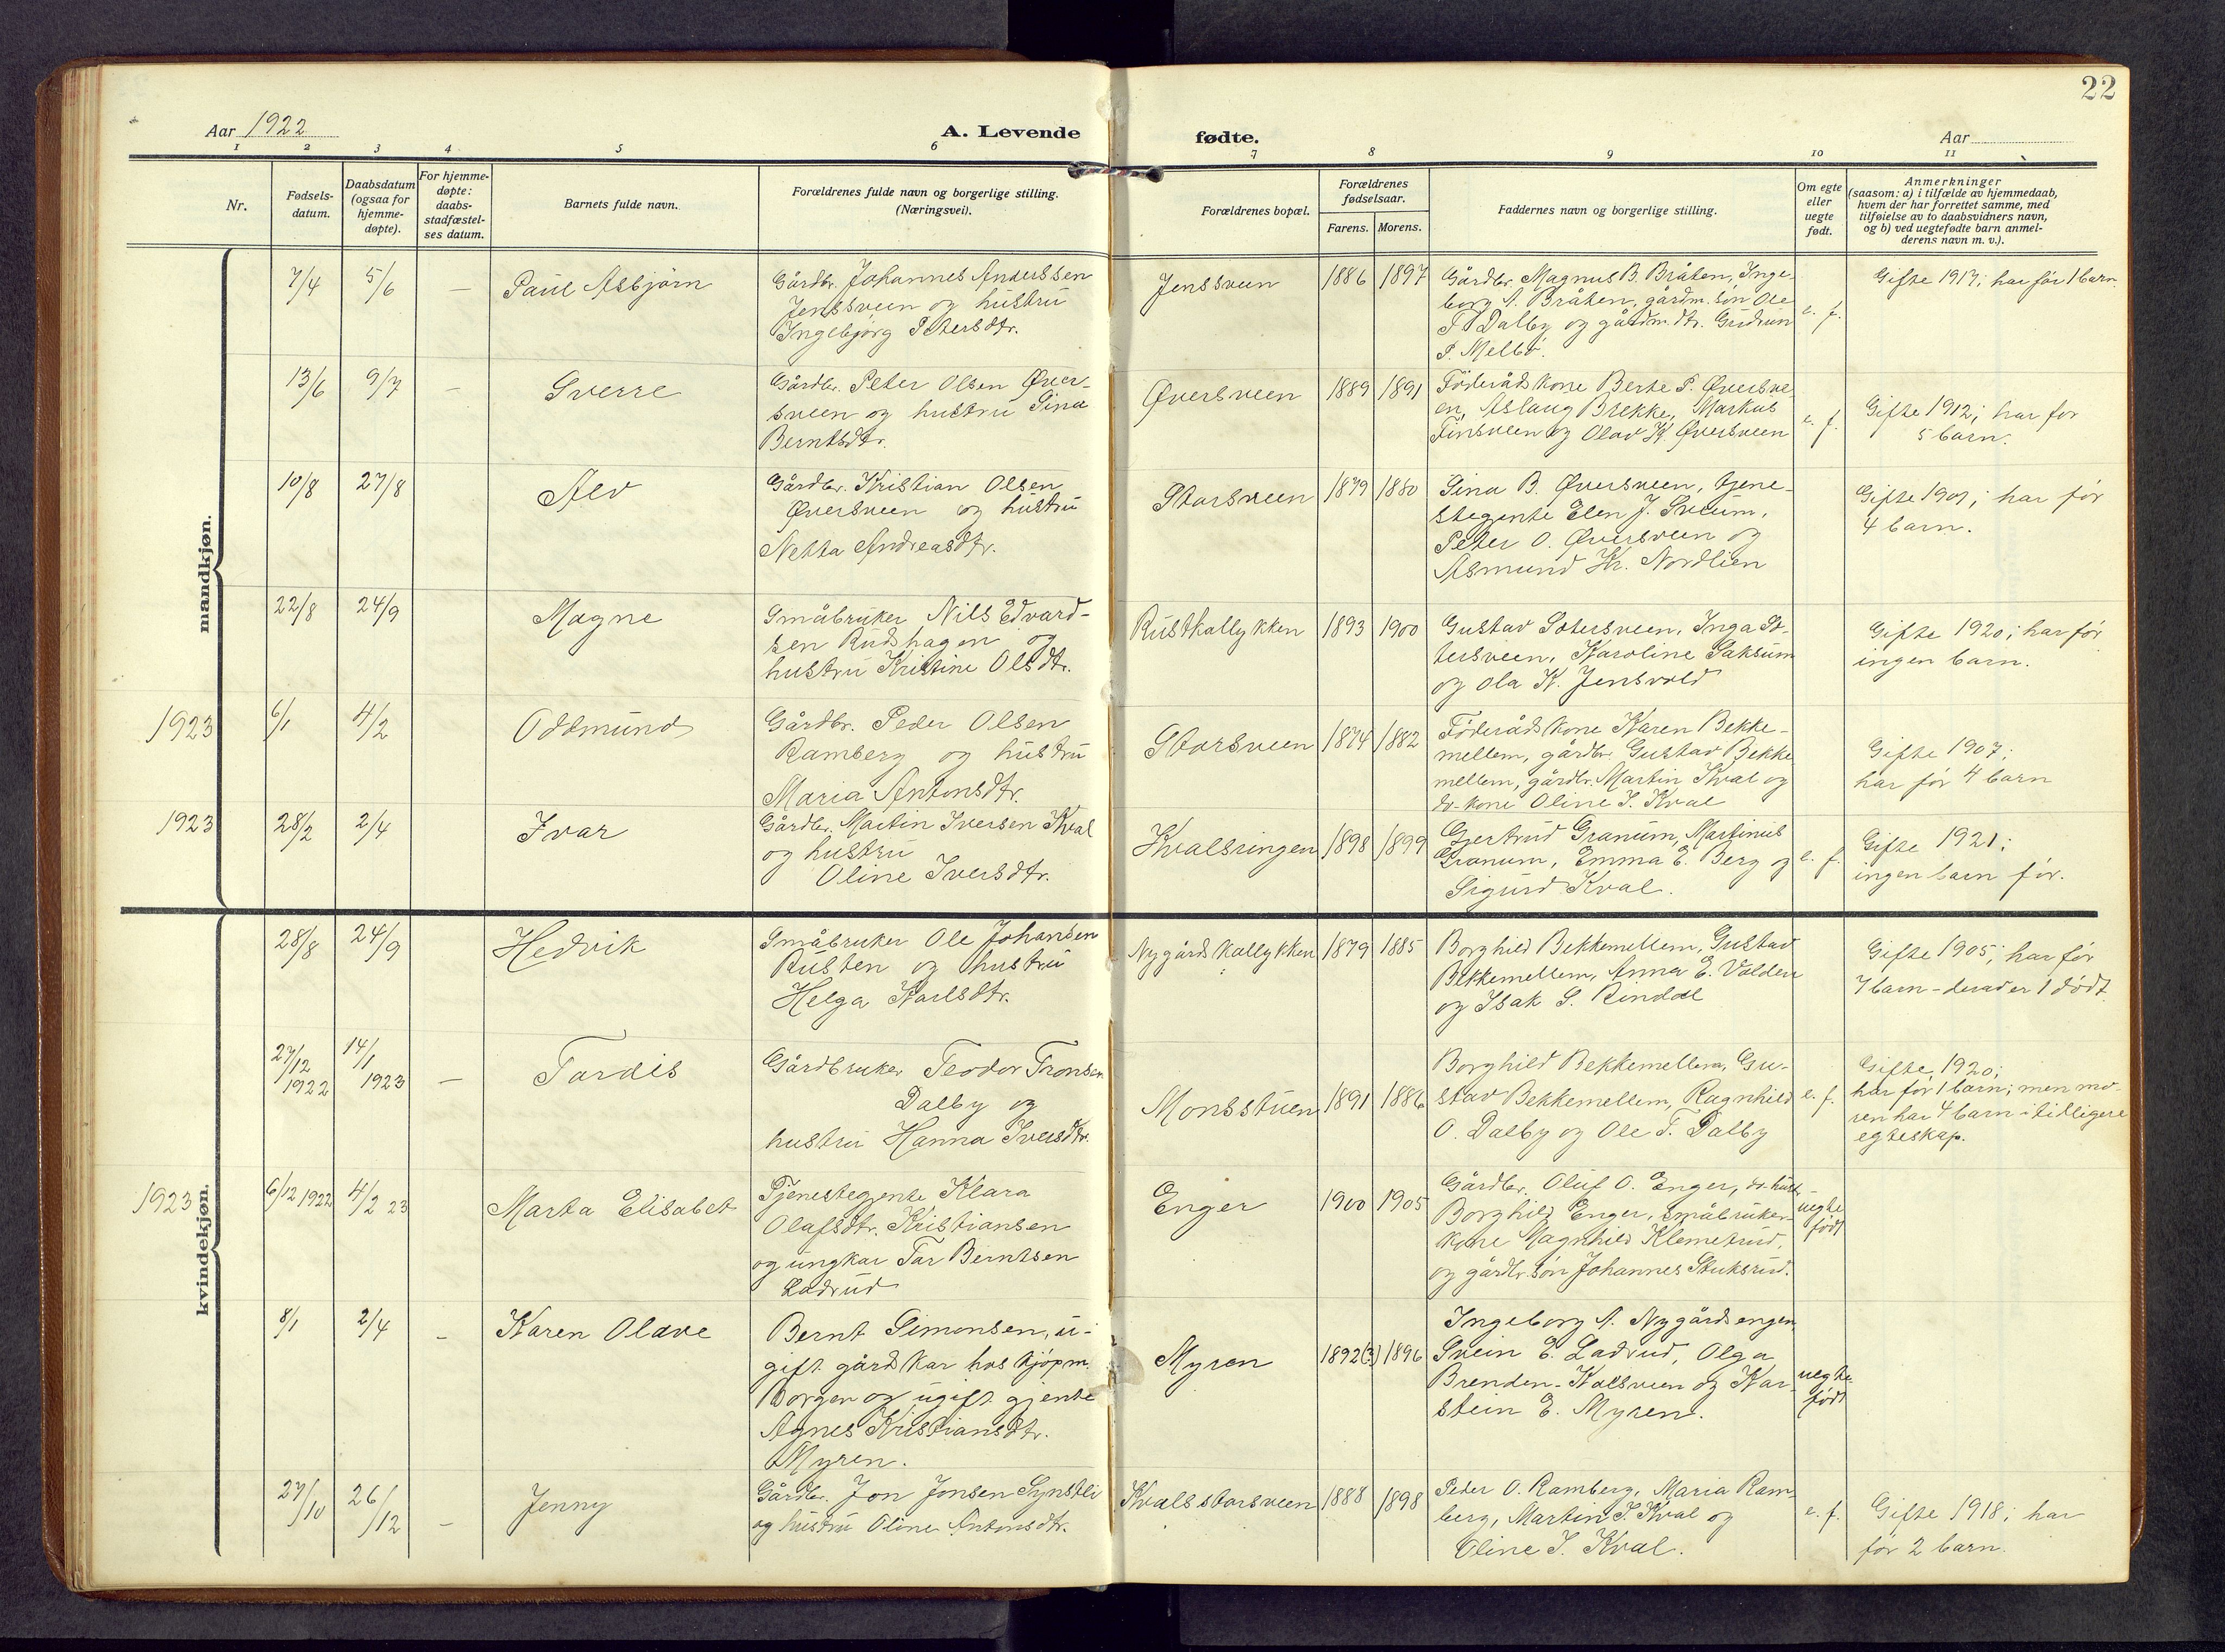 22
Aar 1922
A. Levende
fødte.
Aar
1 2 3 4 5 6 7 8 9 10 11
Nr.
Fødsels-
datum.
Daabsdatum
(ogsaa for
hjemme-
døpte).
For hjemme-
døpte:
daabs-
stadfæstel-
ses datum.
Barnets fulde navn.
Forældrenes fulde navn og borgerlige stilling.
(Næringsvei).
Forældrenes bopæl.
Forældrenes
fødselsaar.
Farens. Morens.
Faddernes navn og borgerlige stilling.
Om egte
eller
uegte
født.
Anmerkninger
(saasom: a) i tilfælde av hjemmedaab,
hvem der har forrettet samme, med
tilføielse av to daabsvidners navn,
og b) ved uegtefødte barn anmel-
derens navn m. v.).
mandkjøn.
7/4 5/6 — Paul Asbjørn
Gårdbr. Johannes Anderssen
Jenssveen og hustru
Ingebjørg Petersdtr.
Jenssveen 1886 1897
Gårdbr. Magnus B. Bråten, Inge-
borg A. Bråten, gårdm. søn Ole
T. Dalby og gårdm. dtr. Gudrun
P. Melbø.
e. f.
Gifte 1917; har før 1 barn.
13/6 9/7 — Sverre
Gårdbr. Peter Olsen Øver-
sveen og hustru Sina
Berntsdtr.
Øversveen 1889 1891
Føderådskone Berte P. Øversve-
en, Aslaug Brekke, Markus
Finsveen og Olav K. Øversveen
e. f.
Gifte 1912; har for
5 barn.
10/8 27/8 Alv
Gårdbr. Kristian Olsen
Øversveen og hustru
Netta Andreasdtr.
Storsveen 1879 1880
Sina B. Øversveen, tjene-
stegjente Elen J. Sveum,
Peter O. Øversveen og
Asmund Kr. Nordlien
Gifte 1907; har før
4 barn.
22/8 24/9 Magne
Småbruker Nils Edvard-
sen Rudshagen og
hustru Kristine Olsdtr.
Rustkallykken 1893 1900
Gustav Sotersveen, Inga So-
tersveen, Karoline Saksum
og Ola K. Jensvold
Gifte 1920; har før
ingen barn.
1923 6/1 4/2 Oddmund
Gårdbr. Peder Olsen
Ramberg og hustru
Maria Antonsdtr.
Storsveen 1874 1882
Føderådskone Karen Bekke-
mellem, gårdbr. Gustav Bekke
mellem, gårdbr. Martin Kval og
do- kone Oline I. Kval
Gifte 1907;
har før 4 barn
1923 28/2 2/4 Ivar
Gårdbr. Martin Iversen Kval
og hustru
Oline Iversdtr.
Kvalsringen 1898 1899
Gjertrud Granum, Martinus
Granum, Emma E. Berg og
Sigurd Kval.
e. f.
Gifte 1921;
ingen barn før.
kvindekjøn.
28/8 24/9 Hedvik
Småbruker Ole Johansen
Rusten og hustru
Helga Karlsdtr.
Nygårdskallykken 1879 1885
Borghild Bekkemellem, Gustav
Bekkemellem, Anna E. Volden
og Isak S. Rindal
Gifte 1905; har før
7 barn - derav er 1 dødt.
27/12 1922 14/1 1923 — Tordis
Gårdbruker Teodor Tronsen
Dalby og
hustru Hanna Iversdtr.
Monsstuen 1891 1886
Borghild Bekkemellem, Gu-
stav Bekkemellem, Ragnhild
O. Dalby og Ole T. Dalby
e. f.
Gifte 1920;
har før 1 barn; men mo-
ren har 4 barn i tidligere
egteskap.
1923 6/12 1922 4/2 23 Marta Elisabet
Tjenestegjente Klara
Olafsdtr. Kristiansen
og ungkar Tor Berntsen
Ladrud
Enger 1900 1905
Gårdbr. Oluf O. Enger, do. hustr.
Borghild Enger, småbruker-
kone Magnhild Klemetrud,
og gårdbr. søn Johannes Stuksrud.
uegte
født
8/1 2/4 — Karen Olave
Bernt Simonsen, u-
gift gårdskar hos kjøpm.
Borgen og ugift gjente
Agnes Kristiansdtr.
Myren.
Myren 1892(3) 1896
Ingeborg A. Nygårdsengen,
Svein E. Ladrud, Olga
Brenden-Kalsveen og Kar-
stein E. Myren.
uegte
født
27/10 26/12 — Jenny
Gårdbr. Jon Jonsen Synstli
og hustru Oline Antonsdtr.
Kvalsstorsveen 1888 1898
Peder O. Ramberg, Maria Ram-
berg, Martin I. Kval og
Oline I. Kval.
e. f.
Gifte 1918; har
før 2 barn.